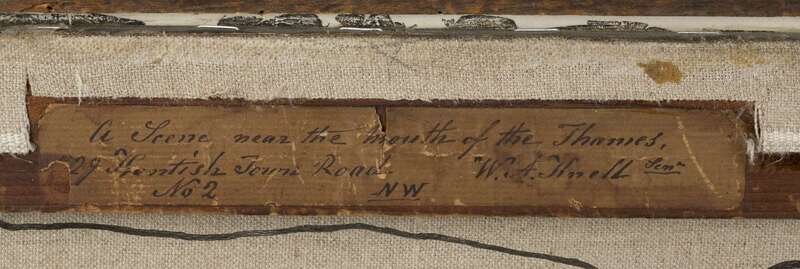 A Scene near the mouth of the Thames,
29 Kentish Town Road W. A. Knell Senr
No 2 NW